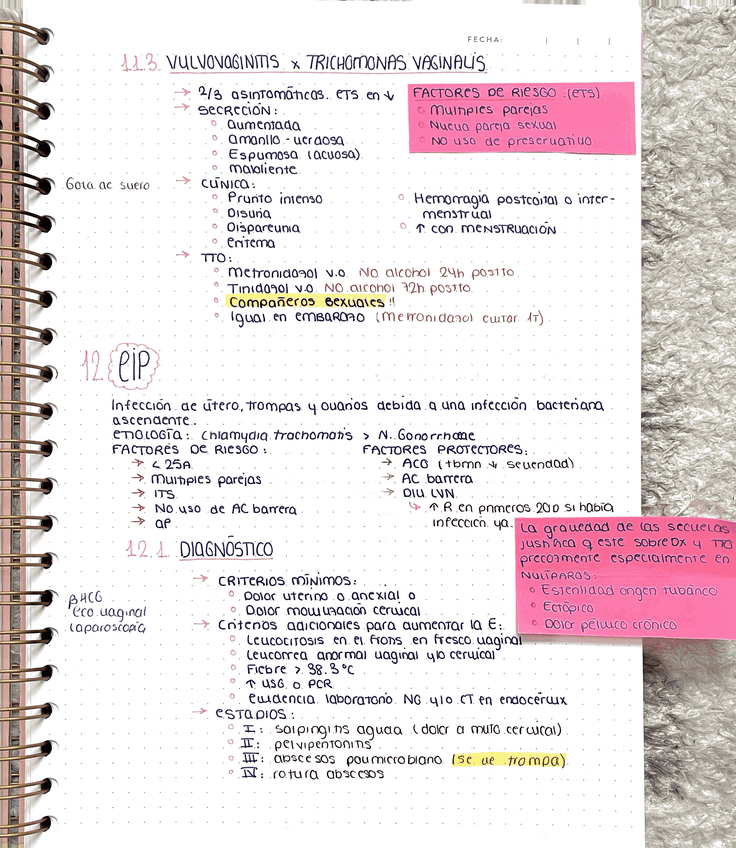 FECHA:
11.3 VULVOVAGINITIS x TRICHOMONAS VAGINALIS
→ 2/3 asintomáticas. ETS en ↓
→ SECRECIÓN:
° Aumentada
° Amarillo-verdosa
° Espumosa (acuosa)
° Maloliente
FACTORES DE RIESGO (ETS)
° Multiples parejas
° Nueva pareja sexual
° No uso de preservativo
Gota de suero
→ CLÍNICA:
° Prurito intenso
° Disuria
° Dispareunia
° Eritema
° Hemorragia postcoital o inter-
menstrual
° ↑ con MENSTRUACIÓN
→ TTO:
° Metronidazol v.o. No alcohol 24h postto.
° Tinidazol v.o. NO alcohol 72h postto.
° Compañeros sexuales!!
° Igual en EMBARAZO (Metronidazol evitar 1T)
12 EIP
Infección de útero, trompas y ovarios debida a una infección bacteriana
ascendente.
ETIOLOGÍA: Chlamydia trachomatis > N. Gonorrhoae
FACTORES DE RIESGO:
→ < 25A
→ Multiples parejas
→ ITS
→ No uso de AC barrera
→ AP
FACTORES PROTECTORES:
→ ACO (tbmn ↓ severidad)
→ AC barrera
→ DIU LVN.
↳ ↑ R en primeros 20D si había
infección ya.
La gravedad de las secuelas
justifica q este sobreDx y TTO
precozmente especialmente en
NULÍPARAS:
° Esterilidad origen tubárico
° Ectópico
° Dolor pélvico crónico
12.1. DIAGNÓSTICO
βHCG
Eco vaginal
Laparoscopia
→ CRITERIOS MÍNIMOS:
° Dolor uterino o anexial o
° Dolor movilización cervical
→ Criterios adicionales para aumentar la E:
° Leucocitosis en el frotis en fresco vaginal
° Leucorrea anormal vaginal y/o cervical
° Fiebre > 38.3°C
° ↑ VSG o PCR
° Evidencia laboratorio NG y/o CT en endocérvix
→ ESTADIOS:
° I: salpingitis aguda (dolor a mvto cervical)
° II: pelviperitonitis
° III: abscesos polimicrobiano (se ve trompa)
° IV: rotura abscesos